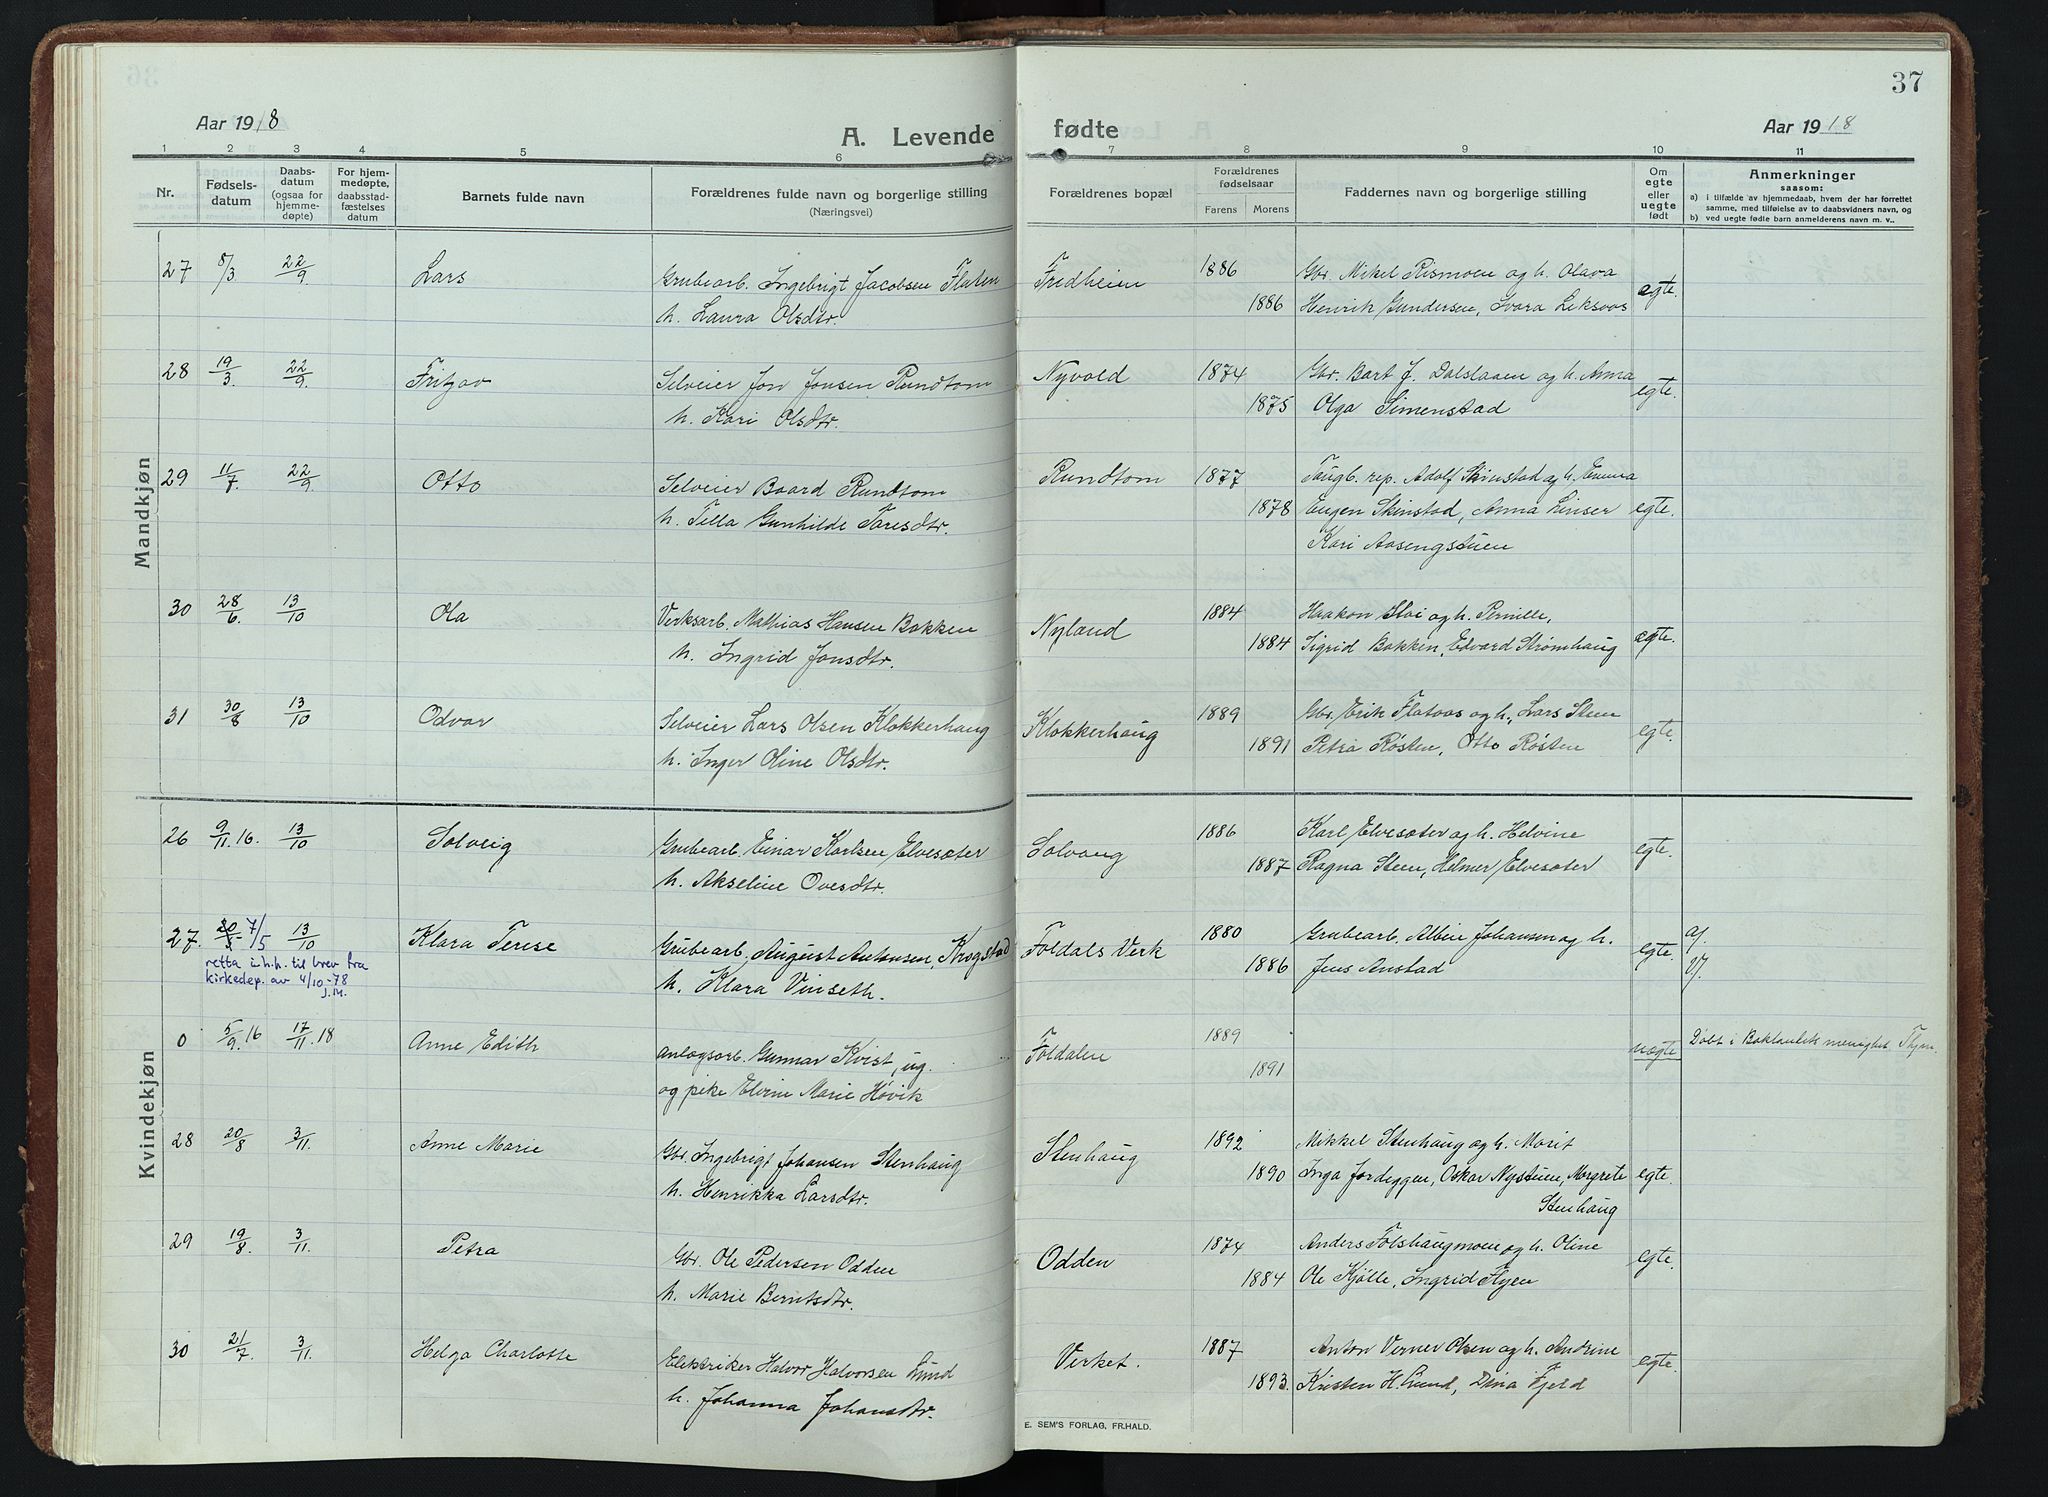 Aar 1918
A. Levende
fødte
Aar 1918
37
1 2 3 4 5 6 7 8 9 10 11
Nr.
Fødsels-
datum
Daabs-
datum
(ogsaa for
hjemme-
døpte)
For hjem-
medøpte,
daabsstad-
fæstelses
datum
Barnets fulde navn
Forældrenes fulde navn og borgerlige stilling
(Næringsvei)
Forældrenes bopæl
Forældrenes
fødselsaar
Farens Morens
Faddernes navn og borgerlige stilling
Om
egte
eller
uegte
født
Anmerkninger
saasom:
a) i tilfælde av hjemmedaab, hvem der har forrettet
samme, med tilføielse av to daabsvidners navn, og
b) ved uegte fødte barn anmelderens navn m. v..
Mandkjøn
27 8/3 22/9 Lars Grubearb. Ingebrigt Jacobsen Flaten Fredheim 1886 Gbr. Mikel Rismoen og h. Olava egte.
h. Laura Olsdtr. 1886 Henrik Gundersen, Svara Leksvos
28 19/3 22/9. Fritjov Selveier Jon Jonsen Rundtom Nyvold 1874 Gbr. Bart J. Dalslaaen og h. Anna egte.
h. Kari Olsdtr. 1875 Olga Simenstad
29 11/7 22/9. Otto Selveier Baard Rundtom Rundtom 1877 Taugb. rep. Adolf Skinstad og h. Emma
h. Tella Gunhilde Taresdtr. 1878 Eugen Skinstad, Anna Linser egte.
Kari Aasengstuen
30 28/6. 13/10 Ola Verksarb. Mathias Hansen Bakken Nyland 1884 Haakon Stai og h. Pernille,
h. Ingrid Jonsdtr. 1884 Sigrid Bakken, Edvard Strømhaug egte.
31 30/8 13/10 Odvar Selveier Lars Olsen Klokkerhaug Klokkerhaug 1889 Gbr. Erik Flataas og h., Lars Steen egte.
h. Inger Oline Olsdtr. 1891 Petra Røsten, Otto Røsten
Kvindekjøn
26 9/11.16. 13/10 Solveig Grubearb. Einar Karlsen Elvesæter Solvang 1886 Karl Elvesæter og h. Helvine egte.
h. Akseline Ovesdtr. 1887 Ragna Steen, Helmer Elvesæter
27. 20/5 7/5 13/10 Klara Terese Grubearb. August Antonsen, Krogstad Foldals Verk 1880 Grubearb. Albin Johansen og h. egte. a/.
retta i h.h. til brev fra
kirkedep. av 4/10-78
J.M.
h. Klara Vinseth. 1886 Jens Anstad
0 5/9.16 17/11.18 Anne Edith Anlægsarb. Gunnar Kvist, ug. Foldalen 1889 uegte Døbt i
og pike Elvine Marie Høvik 1891
28 20/8 3/11. Anne Marie Gbr. Ingebrigt Johansen Stenhaug Stenhaug 1892 Mikkel Stenhaug og h. Marit
h. Henrikka Larsdtr. 1890 Inga Jordeggen, Oskar Nystuen, Margrete egte.
Stenhaug
29 19/8. 3/11. Petra Gbr. Ole Pedersen Odden Odden 1874 Anders Folshaugmoen og h. Oline egte.
h. Marie Berntsdtr. 1884 Ole Kjølle, Ingrid Flyen
30 21/7. 3/11. Helga Charlotte Elektriker Halvor Halvorsen Lund Verket. 1887 Anton Verner Olsen og h. Andrine egte.
h. Johanna Johansdtr. 1893. Kristen H. Lund, Dina Fjeld
E. SEM'S FORLAG, FR.HALD.